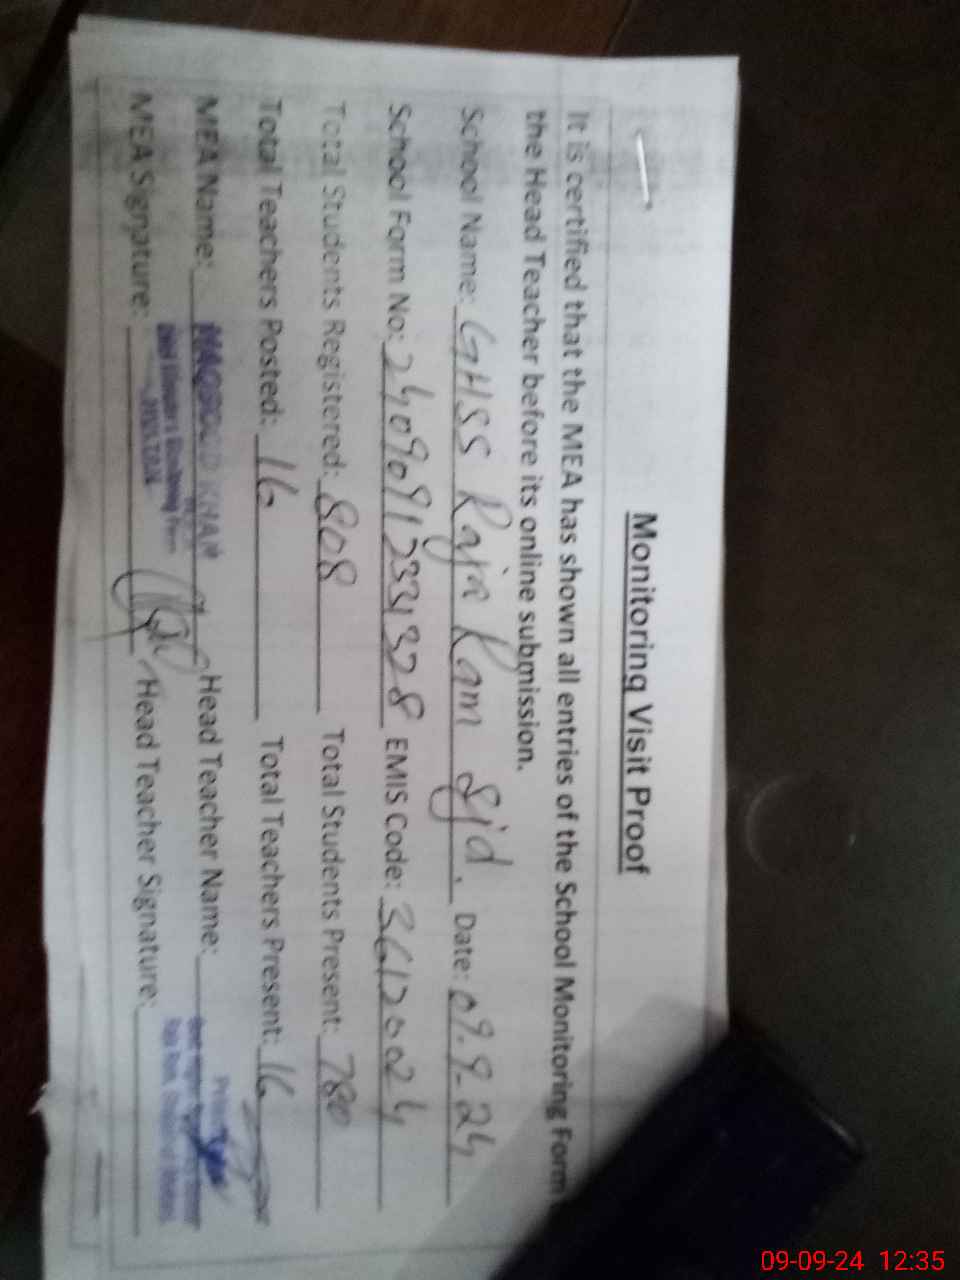 Monitoring Visit Proof
It is certified that the MEA has shown all entries of the School Monitoring Form
the Head Teacher before its online submission.
School Name: GHSS Raja Ram Sjd. Date: 09.9-24
School Form No: 24090912331328 EMIS Code: 36120024
Total Students Registered: 808 Total Students Present: 780
Total Teachers Posted: 16 Total Teachers Present: 16
MEA Name: KHAN Head Teacher Name:
MEA Signature: Head Teacher Signature:
09-09-24 12:35